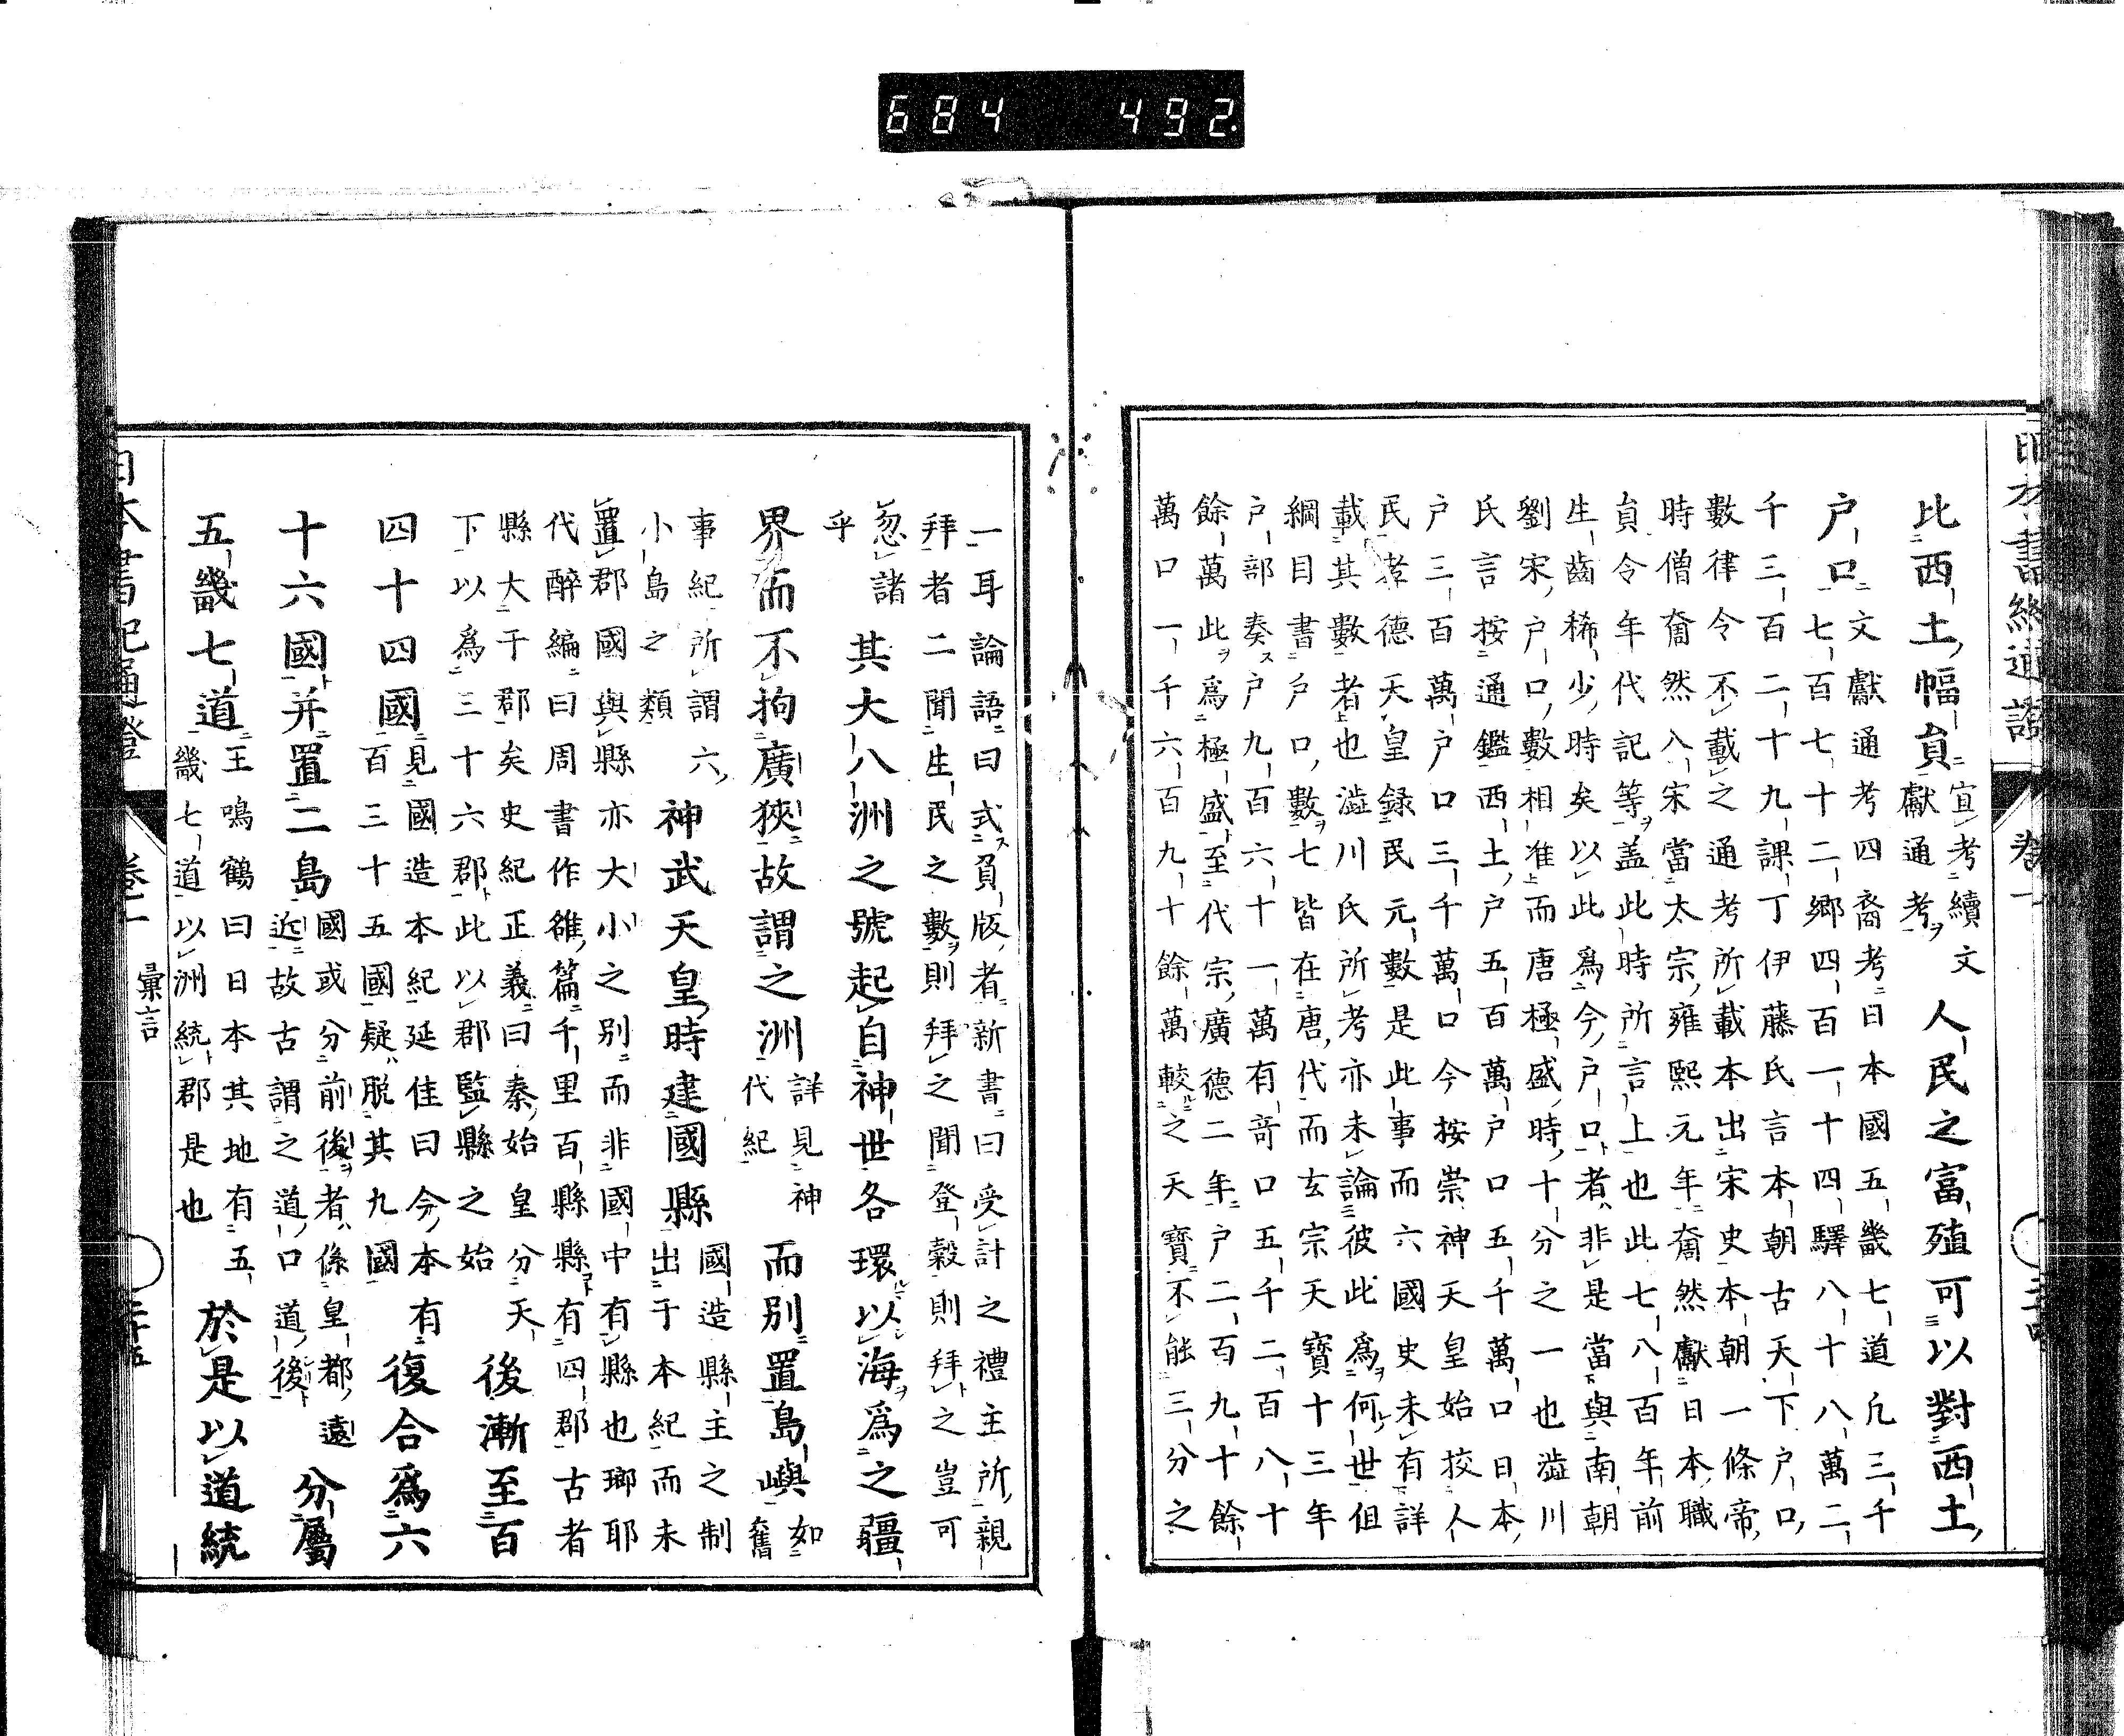 日本書紀通證 卷一
比西土幅員宜考續文
獻通考人民之富殖可以對西土
戶口文獻通考四裔考曰本國五畿七道凡三千
七百七十二鄉四百一十四驛八十八萬二
千三百二十九課丁伊藤氏言本朝古天下戶口
數律令不載之通考所載本出宋史本朝一條帝
時僧奝然入宋當太宗雍熙元年奝然獻日本職
貟令年代記等盖此時所言上也此七八百年前
生齒稀少時矣以此爲今戶口者非是當與南朝
劉宋戶口數相准而唐極盛時十分之一也澁川
氏言按通鑑西土戶五百萬戶口五千萬口日本
戶三百萬戶口三千萬口今按崇神天皇始挍人
民孝德天皇錄民元數是此事而六國史未有詳
載其數者也澁川氏所考亦未論彼此爲何世但
綱目書戶口數七皆在唐代而玄宗天寶十三年
戶部奏戶九百六十一萬有竒口五千二百八十
餘萬此爲極盛至代宗廣德二年戶二百九十餘
萬口一千六百九十餘萬較之天寶不能三分之
一耳論語曰式負版者新書曰受計之禮主所親
拜者二聞生民之數則拜之聞登穀則拜之豈可
忽諸
乎其大八洲之號起自神世各環以海爲之疆
界而不拘廣狹故謂之洲詳見神
代紀而別置島嶼如
舊
事紀所謂六
小島之類神武天皇時建國縣國造縣主之制
出于本紀而未
置郡國與縣亦大小之別而非國中有縣也瑯耶
代醉編曰周書作雒篇千里百縣縣有四郡古者
縣大于郡矣史紀正義曰秦始皇分天
下以爲三十六郡此以郡監縣之始後漸至百
四十四國見國造本紀延佳曰今本有
百三十五國疑脫其九國復合爲六
十六國并置二島國或分前後者係皇都遠
近故古謂之道口道後分屬
五畿七道王鳴鶴曰日本其地有五
畿七道以洲統郡是也於是以道統
日本書紀通證 卷一 彙言 三十五
684 492